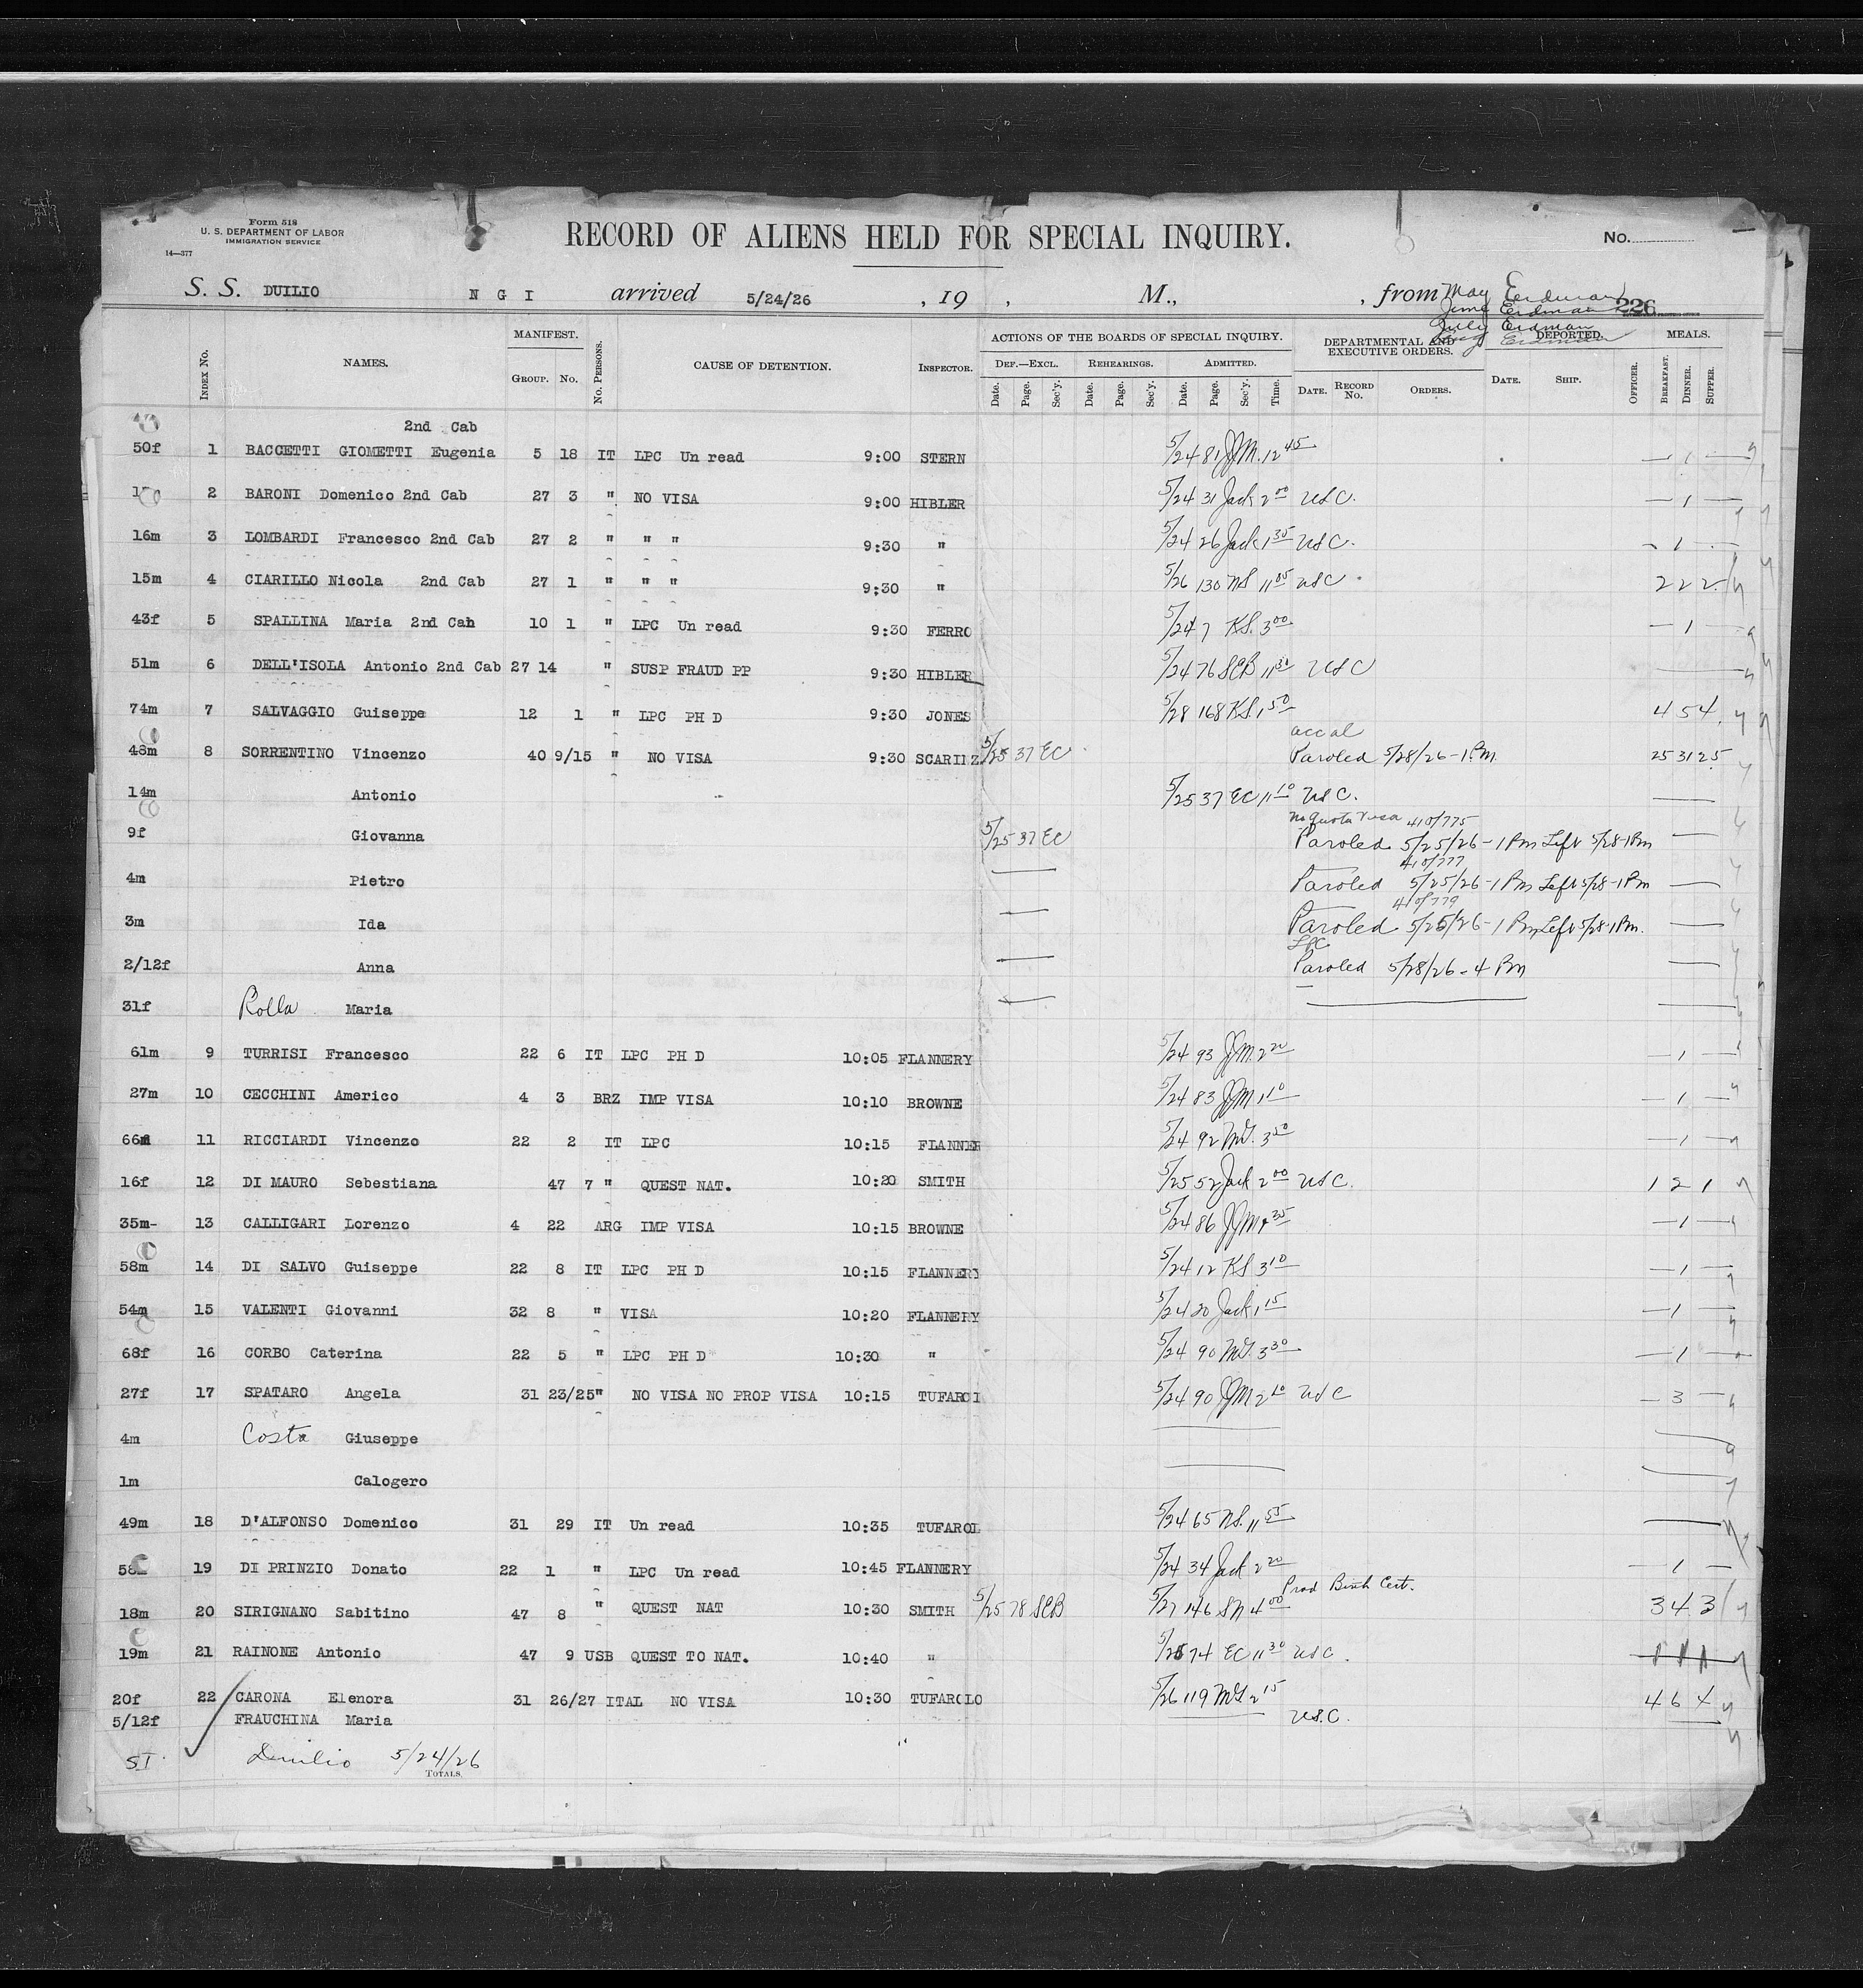 Form 518
U. S. DEPARTMENT OF LABOR
IMMIGRATION SERVICE
14—377
RECORD OF ALIENS HELD FOR SPECIAL INQUIRY.
No.
S. S. DUILIO N G I arrived 5/24/26 , 19 , M., , from May Erdman
June Erdman 226
July Erdman
Aug Erdman
INDEX No. NAMES. MANIFEST. GROUP. No. No. PERSONS. CAUSE OF DETENTION. INSPECTOR. ACTIONS OF THE BOARDS OF SPECIAL INQUIRY. DEF.—EXCL. Date. Page. Sec'y. REHEARINGS. Date. Page. Sec'y. ADMITTED. Date. Page. Sec'y. Time. DEPARTMENTAL AND EXECUTIVE ORDERS. DATE. RECORD No. ORDERS. DEPORTED. DATE. SHIP. OFFICER. MEALS. BREAKFAST. DINNER. SUPPER.
2nd Cab
50f 1 BACCETTI GIOMETTI Eugenia 5 18 IT LPC Un read 9:00 STERN 5/24 81 JJM 12 45 — 1 —
2 BARONI Domenico 2nd Cab 27 3 " NO VISA 9:00 HIBLER 5/24 31 Jack 2 00 USC. — 1 —
16m 3 LOMBARDI Francesco 2nd Cab 27 2 " " " 9:30 " 5/24 26 Jack 1 35 USC. - 1 -
15m 4 CIARILLO Nicola 2nd Cab 27 1 " " " 9:30 " 5/26 130 NS 11 05 USC 2 2 2
43f 5 SPALLINA Maria 2nd Cab 10 1 " LPC Un read 9:30 FERRO 5/24 7 KS. 3 00 — 1 —
51m 6 DELL'ISOLA Antonio 2nd Cab 27 14 " SUSP FRAUD PP 9:30 HIBLER 5/24 76 SCB 11 30 USC
74m 7 SALVAGGIO Guiseppe 12 1 " LPC PH D 9:30 JONES 5/28 168 KS. 1 50 4 5 4
acc al
48m 8 SORRENTINO Vincenzo 40 9/15 " NO VISA 9:30 SCARILZ 5/25 37 EC Paroled 5/28/26 - 1 P.M. 25 31 25
14m Antonio 5/25 37 EC 11 10 USC.
No Quota Visa 410/775
9f Giovanna 5/25 37 EC Paroled 5/25/26 - 1 Pm Left 5/28-1Pm
410/777
4m Pietro Paroled 5/25/26 - 1 Pm Left 5/28-1Pm
410/779
3m Ida Paroled 5/25/26 - 1 Pm Left 5/28-1Pm.
LPC
2/12f Anna Paroled 5/28/26 - 4 Pm
31f Rolla Maria
61m 9 TURRISI Francesco 22 6 IT LPC PH D 10:05 FLANNERY 5/24 93 JJM. 2 20 — 1 —
27m 10 CECCHINI Americo 4 3 BRZ IMP VISA 10:10 BROWNE 5/24 83 JJM 1 10 — 1 —
66m 11 RICCIARDI Vincenzo 22 2 IT LPC 10:15 FLANNER 5/24 92 3 50 — 1 —
16f 12 DI MAURO Sebestiana 47 7 " QUEST NAT. 10:20 SMITH 5/25 52 Jack 2 00 USC. 1 2 1
35m- 13 CALLIGARI Lorenzo 4 22 ARG IMP VISA 10:15 BROWNE 5/24 86 JJM 35 — 1 —
58m 14 DI SALVO Guiseppe 22 8 IT LPC PH D 10:15 FLANNERY 5/24 12 KS 3 10 — 1 —
54m 15 VALENTI Giovanni 32 8 " VISA 10:20 FLANNERY 5/24 20 Jack 1 15 — 1 —
68f 16 CORBO Caterina 22 5 " LPC PH D 10:30 " 5/24 90 3 30 — 1 —
27f 17 SPATARO Angela 31 23/25 " NO VISA NO PROP VISA 10:15 TUFAROI 5/24 90 JJM 2 10 USC — 3 —
4m Costa Giuseppe
1m Calogero
49m 18 D'ALFONSO Domenico 31 29 IT Un read 10:35 TUFAROL 5/24 65 NS. 11 55
58 19 DI PRINZIO Donato 22 1 " LPC Un read 10:45 FLANNERY 5/24 34 Jack 2 20 — 1 —
Prod Birth Cert.
18m 20 SIRIGNANO Sabitino 47 8 " QUEST NAT 10:30 SMITH 5/25 78 SCB 5/27 146 SN 4 00 3 4 3
19m 21 RAINONE Antonio 47 9 USB QUEST TO NAT. 10:40 " 5/25 74 EC 11 30 USC.
20f 22 CARONA Elenora 31 26/27 ITAL NO VISA 10:30 TUFAROLO 5/26 119 2 15 4 6 4
5/12f FRAUCHINA Maria U.S.C.
SI Duilio 5/24/26
TOTALS.